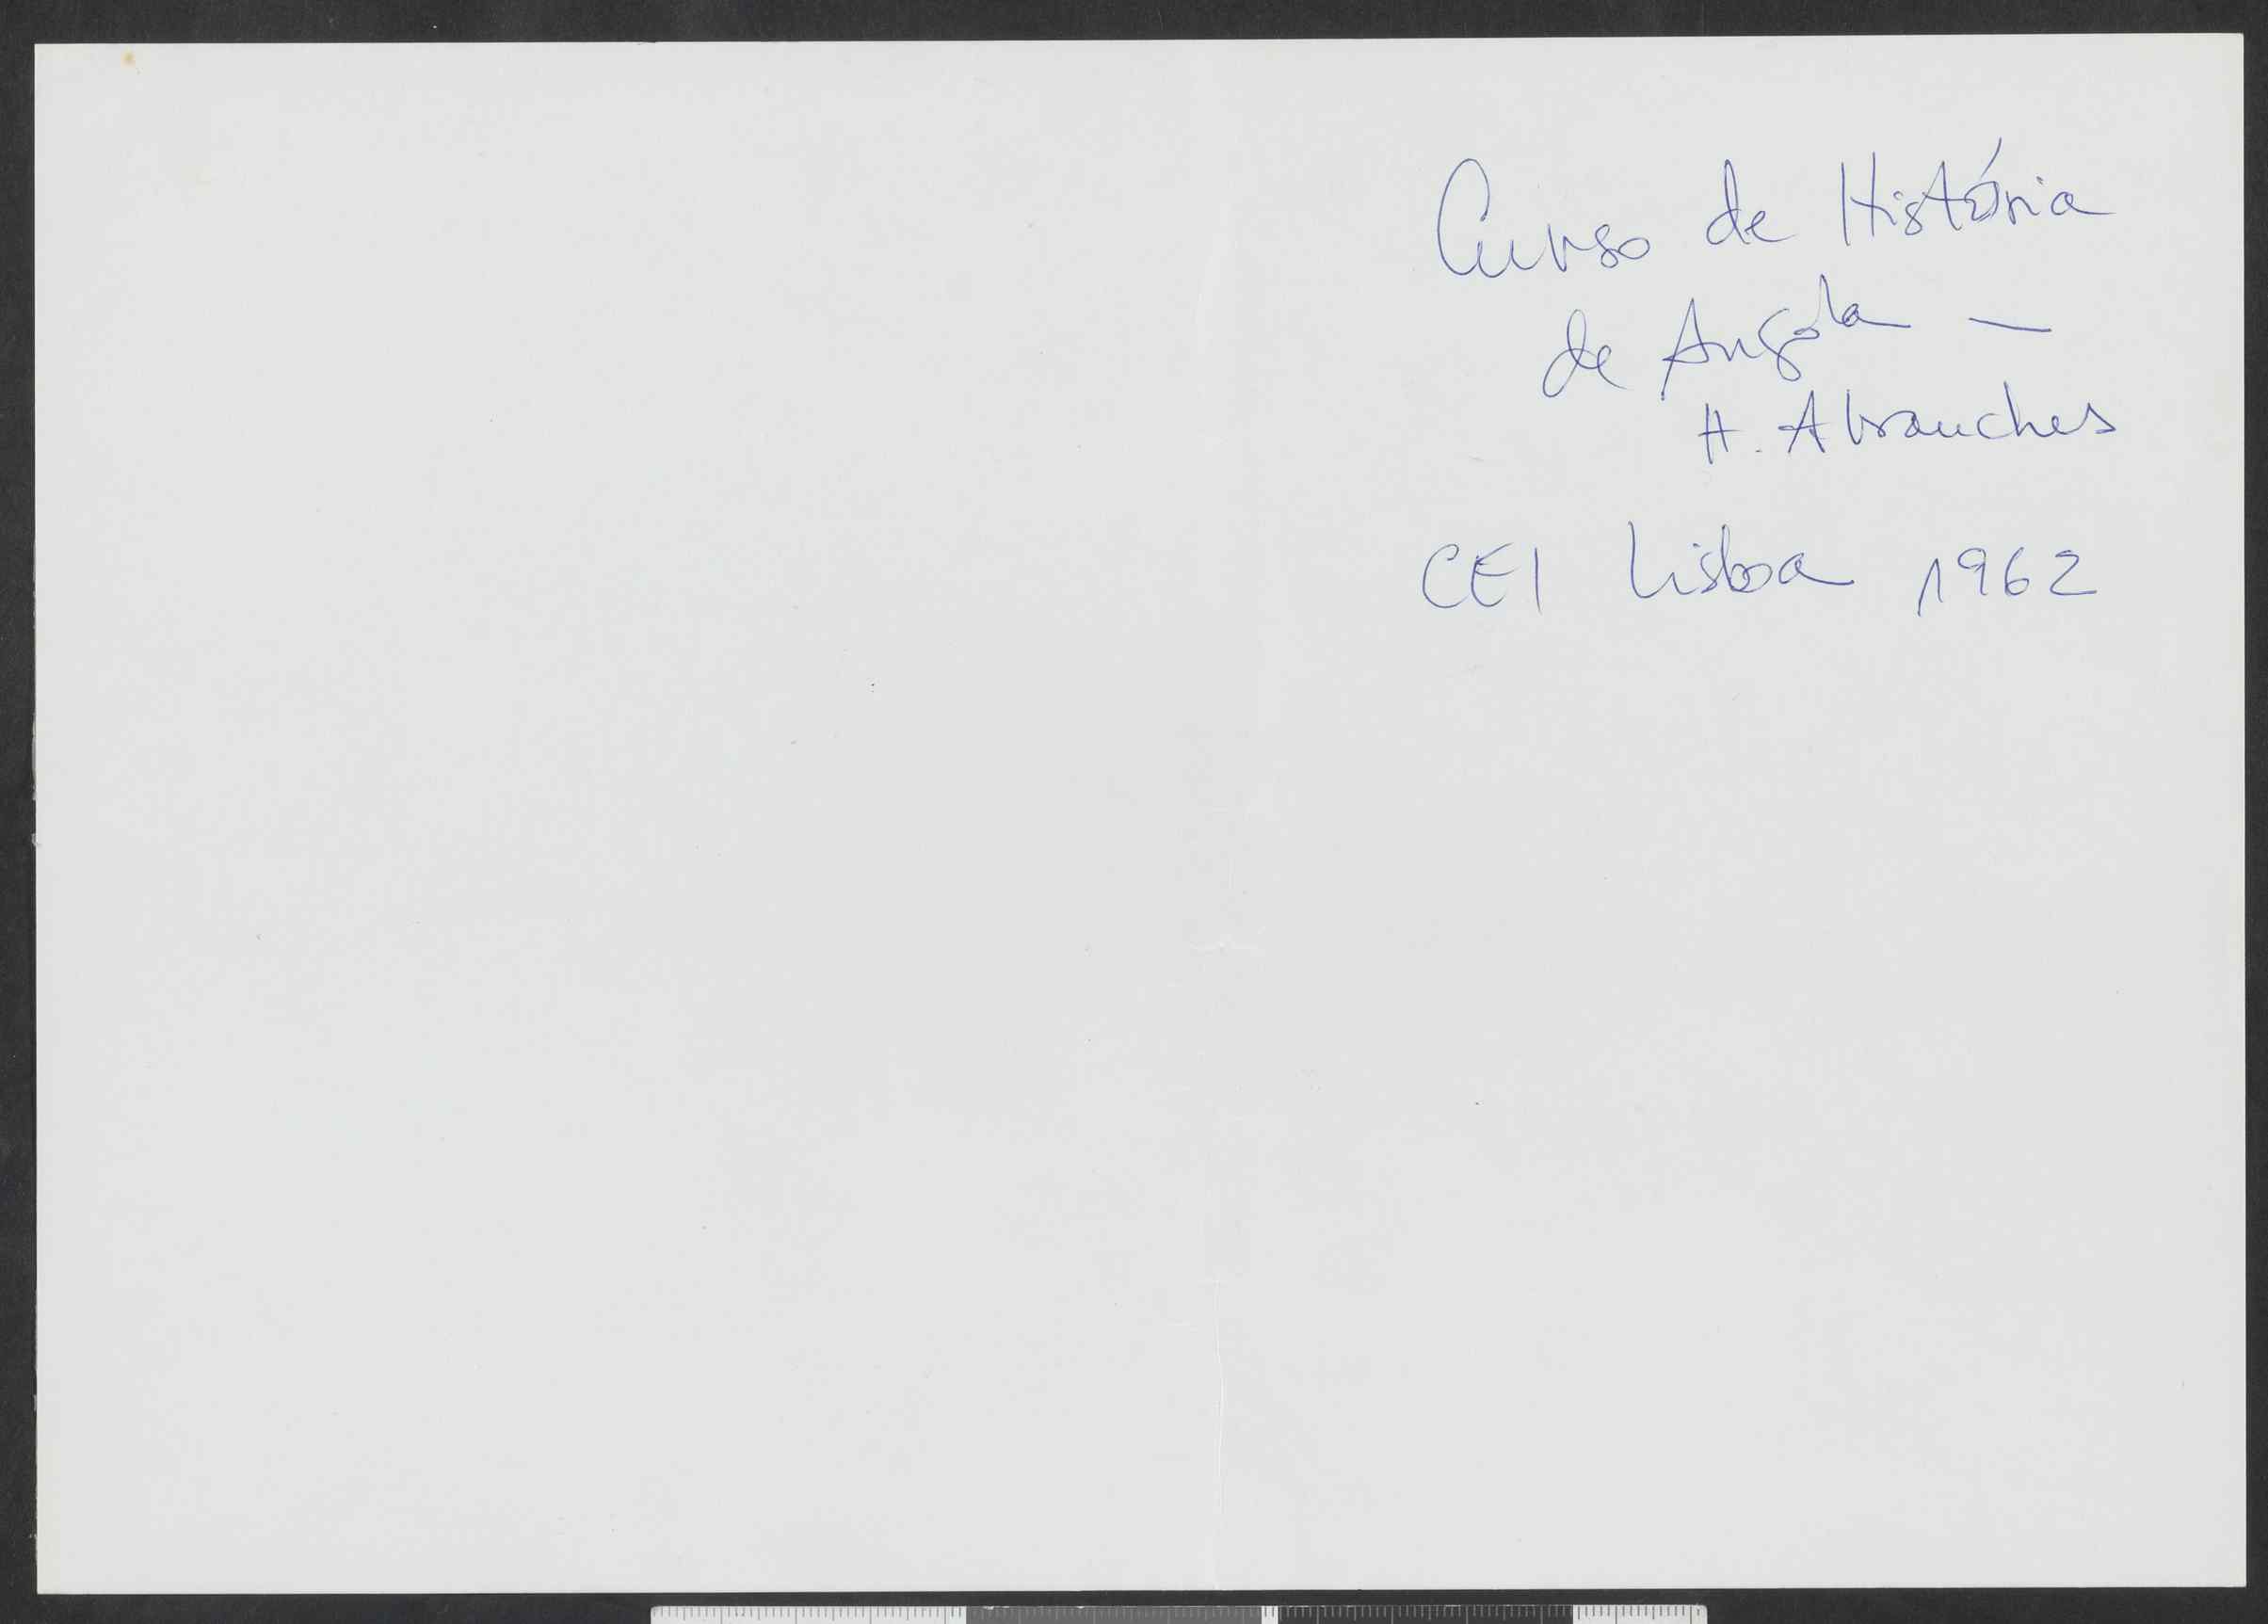 Curso de História
de Angola —
H. Abranches
CEI Lisboa 1962